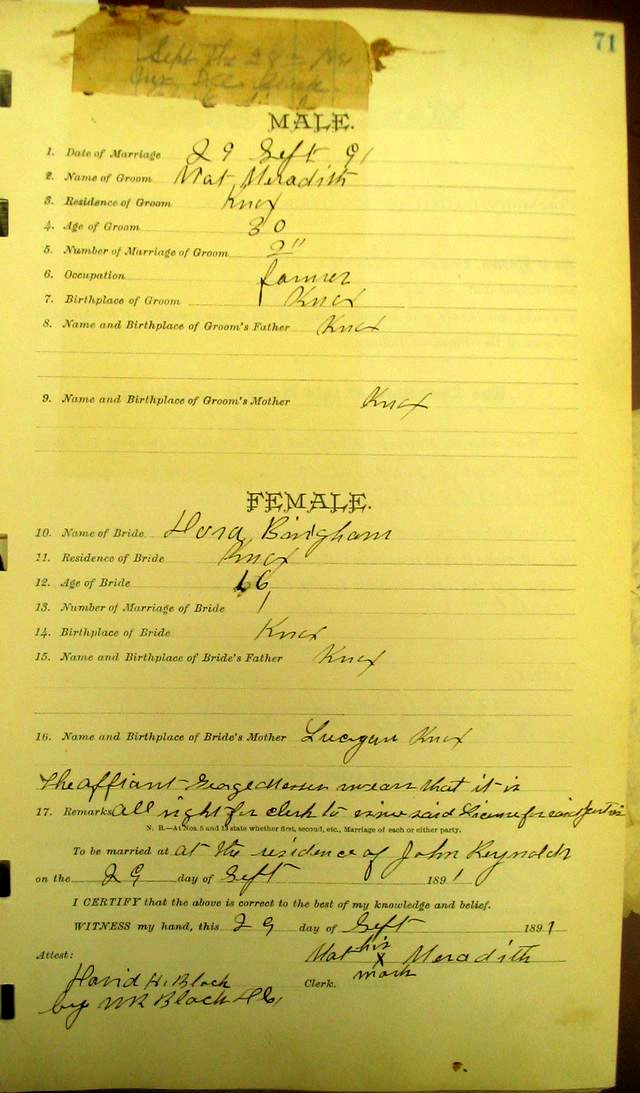 71
Sept the
MALE.
1. Date of Marriage 29 Seft 91
2. Name of Groom Mat Meradith
3. Residence of Groom Knox
4. Age of Groom 30
5. Number of Marriage of Groom 2"
6. Occupation farmer
7. Birthplace of Groom Knox
8. Name and Birthplace of Groom's Father Knox
9. Name and Birthplace of Groom's Mother Knox
FEMALE.
10. Name of Bride Bingham
11. Residence of Bride Knox
12. Age of Bride 16
13. Number of Marriage of Bride 1
14. Birthplace of Bride Knox
15. Name and Birthplace of Bride's Father Knox
16. Name and Birthplace of Bride's Mother Knox
The affiant George swears that it is
17. Remarks all right for clerk to issue said License for said parties
N. B.—At Nos. 5 and 13 state whether first, second, etc., Marriage of each or either party.
To be married at at the residence of John Reynolds
on the 29 day of Seft 1891
I CERTIFY that the above is correct to the best of my knowledge and belief.
WITNESS my hand, this 29 day of Seft 1891
Mat his x mark Meradith
Attest:
David H. Black Clerk.
by WR Black DC